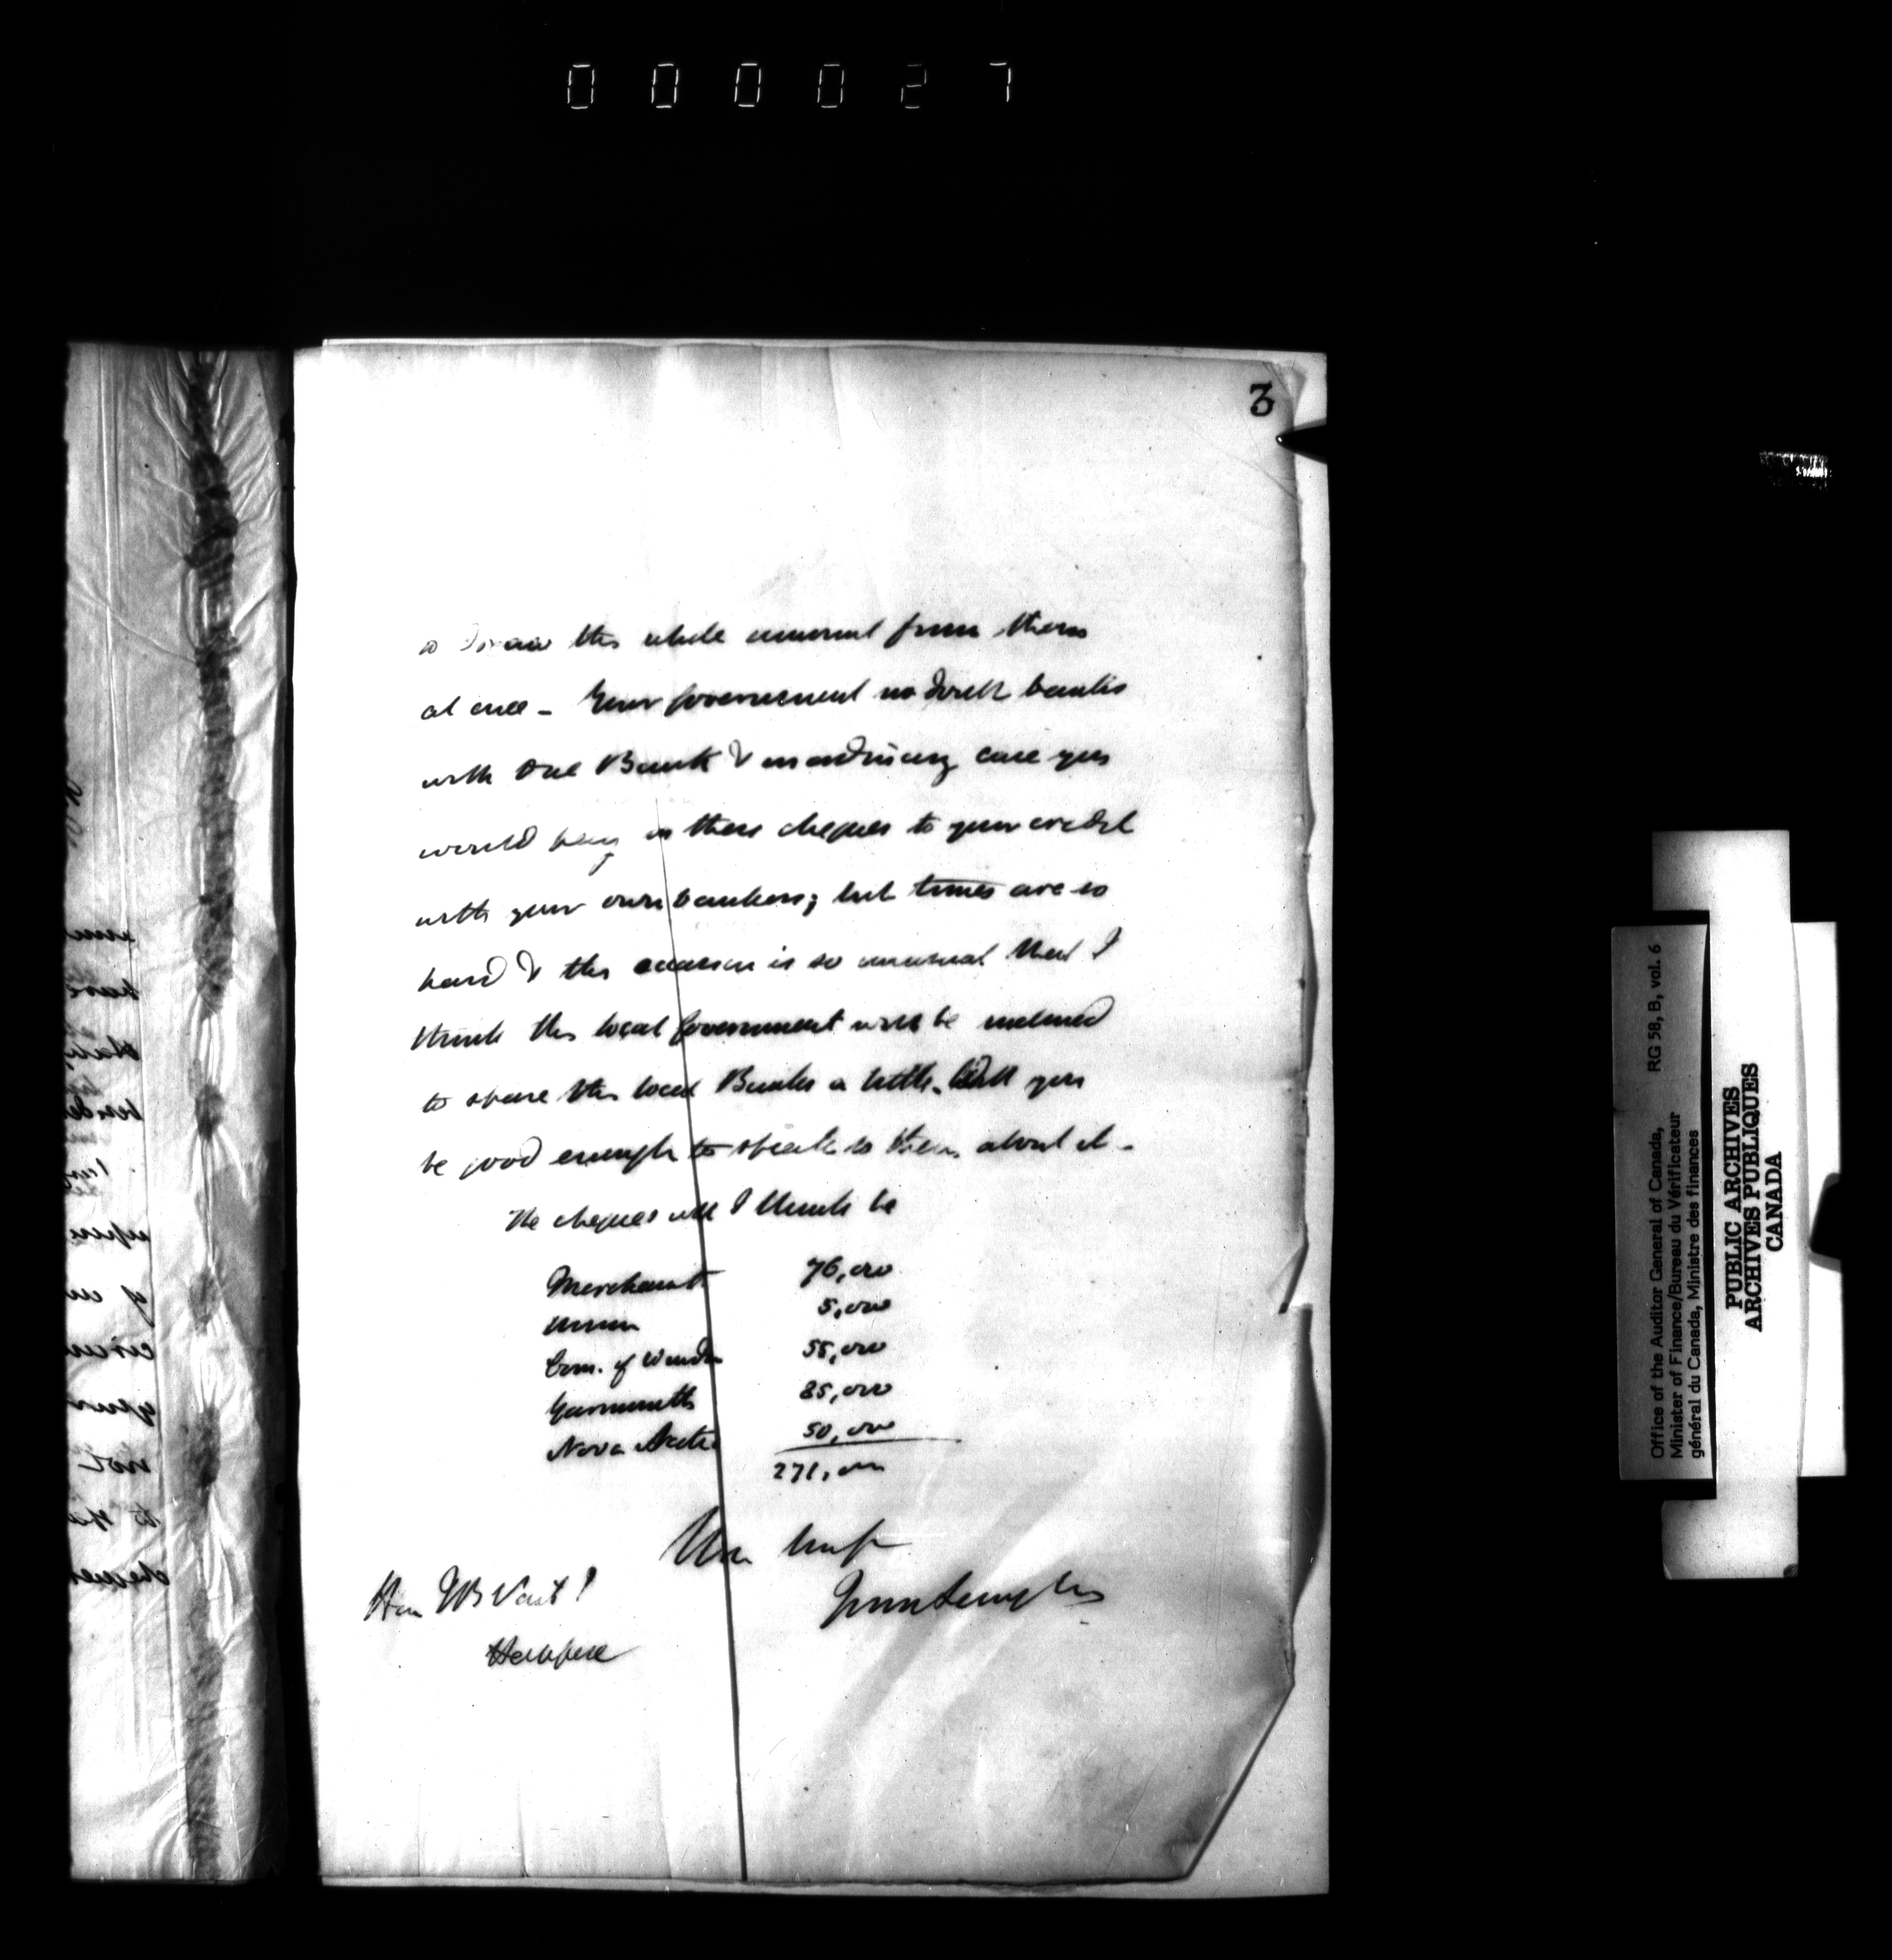 000027
3
to draw the whole amount from them
at once - Your Government no doubt banks
with one Bank & in ordinary case you
would pay in these cheques to your credit
with your own bankers; but times are so
hard & the occasion is so unusual that I
think the local Government will be inclined
to spare the local Banks a little. Will you
be good enough to speak to them about it -
The cheques will I think be
Merchants 76,000
Union 5,000
Com. of Windsor 55,000
Yarmouth 85,000
Nova Scotia 50,000
271,000
Yours truly
Hon WB Vail
Halifax
Office of the Auditor General of Canada, RG 58, B, vol. 6
Minister of Finance/Bureau du Vérificateur
général du Canada, Ministre des finances
PUBLIC ARCHIVES
ARCHIVES PUBLIQUES
CANADA